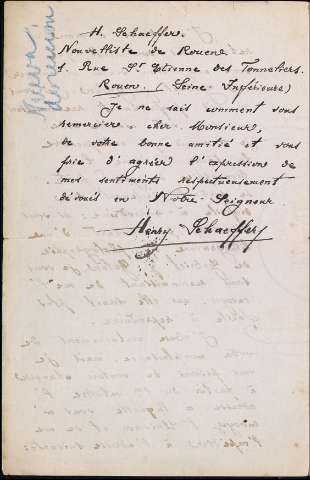 Nueva
dirección
H. Schaeffer.
Nouvelliste de Rouen
1. Rue St Etienne des Tonneliers.
Rouen. (Seine Inférieure)
Je ne sais comment vous
remercier, cher Monsieur,
de votre bonne amitié et vous
prie d'agréer l'expression de
mes sentiments respectueusement
dévoués en Notre Seigneur
Henry Schaeffer